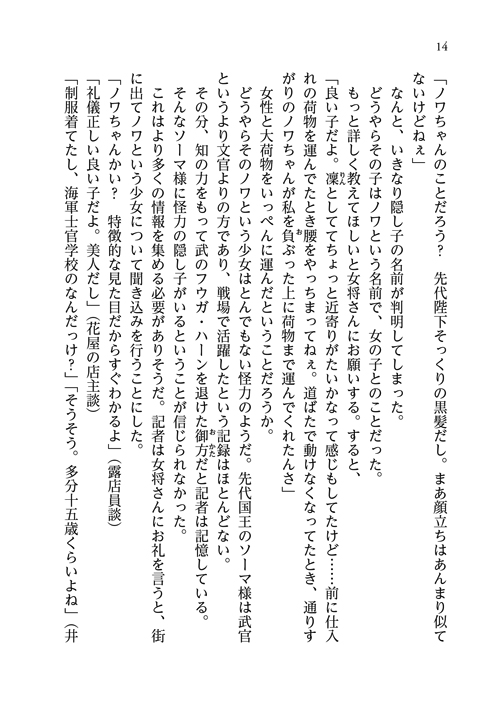 14
「ノワちゃんのことだろう？　先代陛下そっくりの黒髪だし。まあ顔立ちはあんまり似て
ないけどねぇ」
　なんと、いきなり隠し子の名前が判明してしまった。
　どうやらその子はノワという名前で、女の子とのことだった。
　もっと詳しく教えてほしいと女将さんにお願いする。すると、
「良い子だよ。凜としててちょっと近寄りがたいかなって感じもしてたけど……前に仕入
れの荷物を運んでたとき腰をやっちまってねぇ。道ばたで動けなくなってたとき、通りす
がりのノワちゃんが私を負ぶった上に荷物まで運んでくれたんさ」
　女性と大荷物をいっぺんに運んだということだろうか。
　どうやらそのノワという少女はとんでもない怪力のようだ。先代国王のソーマ様は武官
というより文官よりの方であり、戦場で活躍したという記録はほとんどない。
　その分、知の力をもって武のフウガ・ハーンを退けた御方だと記者は記憶している。
　そんなソーマ様に怪力の隠し子がいるということが信じられなかった。
　これはより多くの情報を集める必要がありそうだ。記者は女将さんにお礼を言うと、街
に出てノワという少女について聞き込みを行うことにした。
「ノワちゃんかい？　特徴的な見た目だからすぐわかるよ」（露店員談）
「礼儀正しい良い子だよ。美人だし」（花屋の店主談）
「制服着てたし、海軍士官学校のなんだっけ？」「そうそう。多分十五歳くらいよね」（井